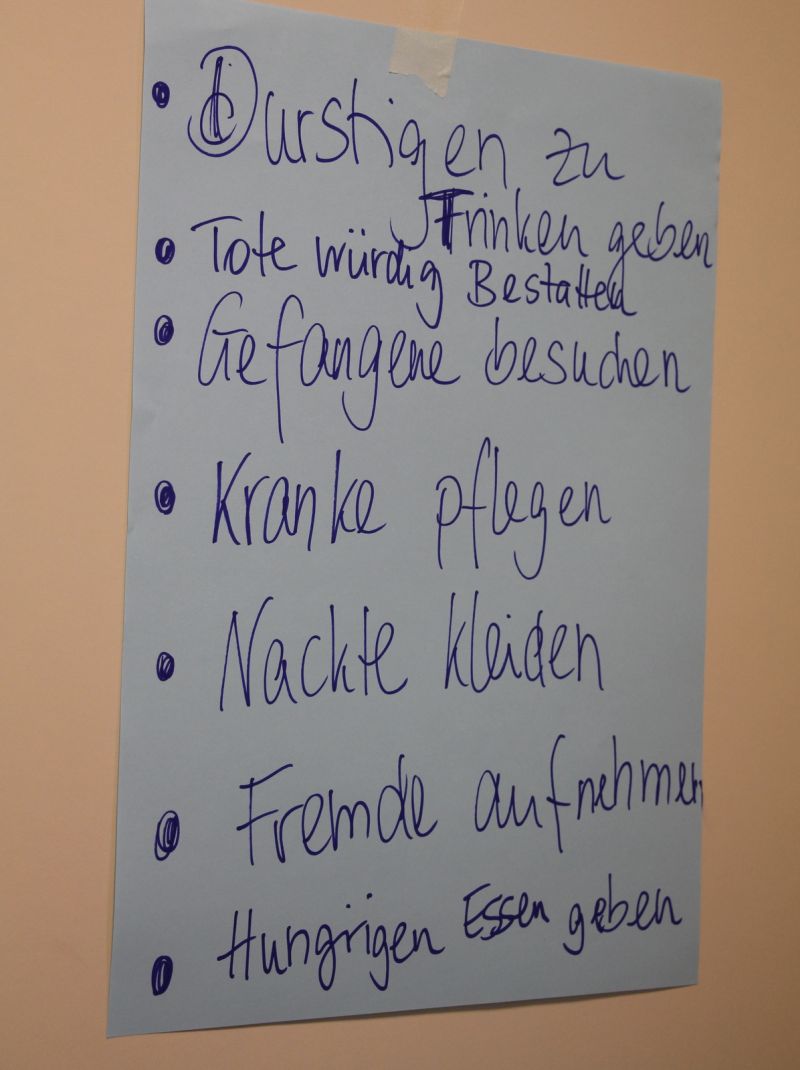 • Durstigen zu
Trinken geben
• Tote würdig Bestatten
• Gefangene besuchen
• Kranke pflegen
• Nackte kleiden
• Fremde aufnehmen
• Hungrigen Essen geben